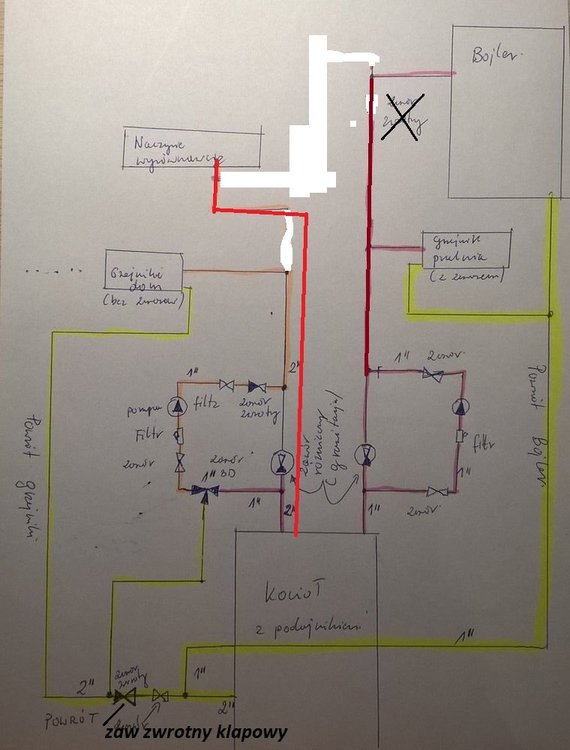 Bojler
zawór
zwrotny
Naczynie
wyrównawcze
Grzejniki
dom
(bez zaworów)
Grzejnik
pralnia
(z zaworem)
2"
1"
zawór
1"
filtr
zawór
zwrotny
pompa
Filtr
zawór
zawór
1" 3D
1"
2"
zawór
różnicowy
(grawitacja)
filtr
1"
zawór
1"
Powrót
grzejniki
Powrót
Bojler
Kocioł
z podajnikiem
1"
1"
2"
zawór
zwrotny
2"
POWRÓT
zawór
zaw zwrotny klapowy